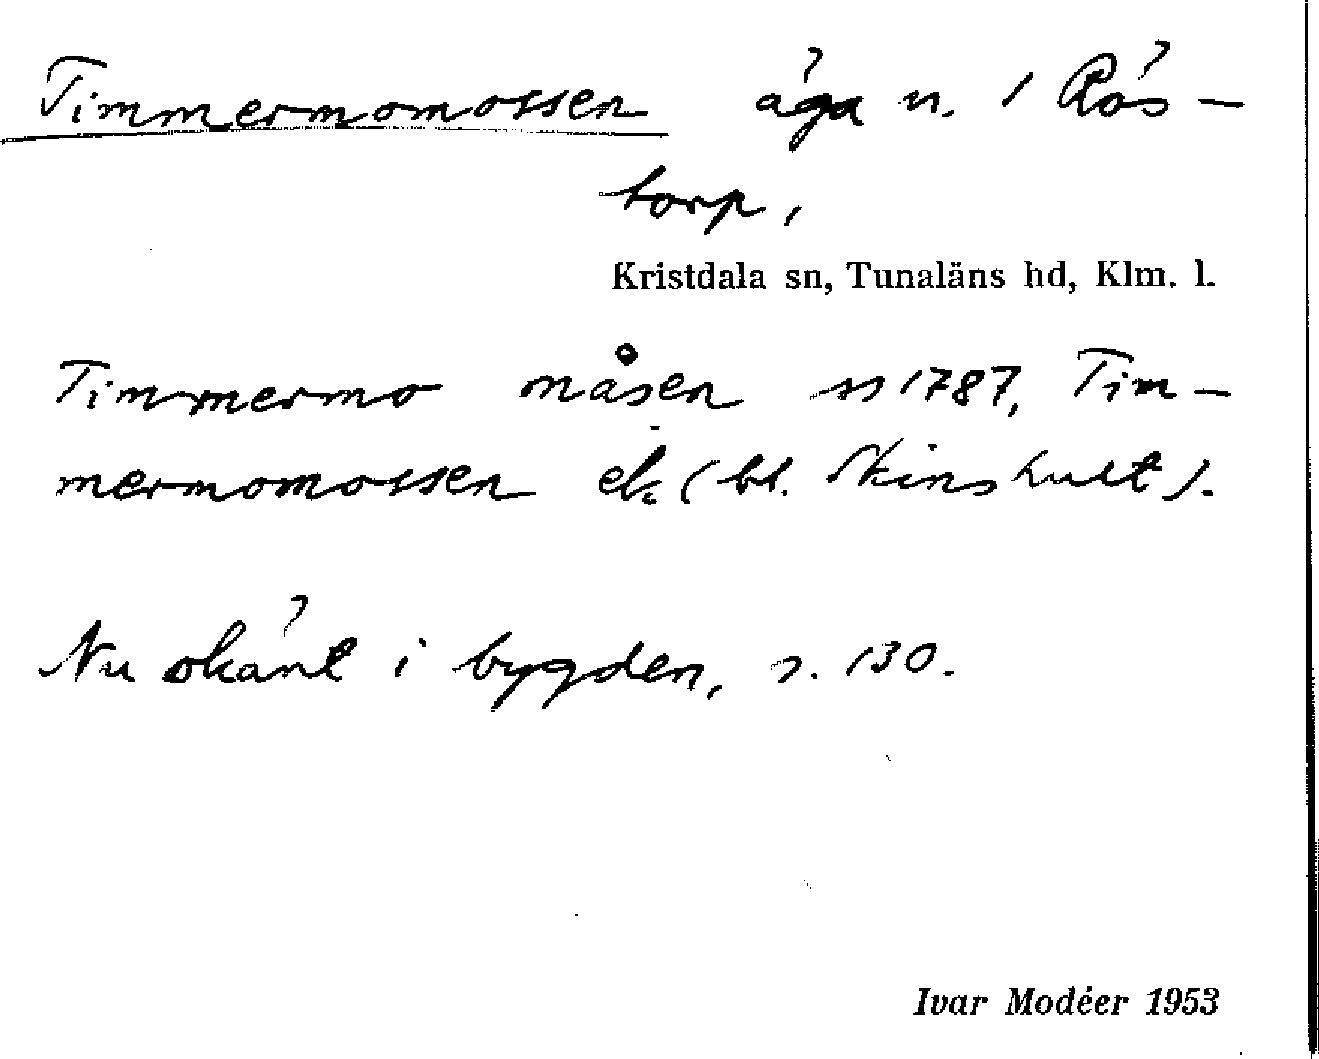 Timmermomossen äga n. 1 Rös-
torp,
Kristdala sn, Tunaläns hd, Klm. l.
Timmermo måsen ss 1787, Tim-
mermomossen ek (bl. Skinshult).
Nu okänt i bygden, s. 130.
Ivar Modéer 1953